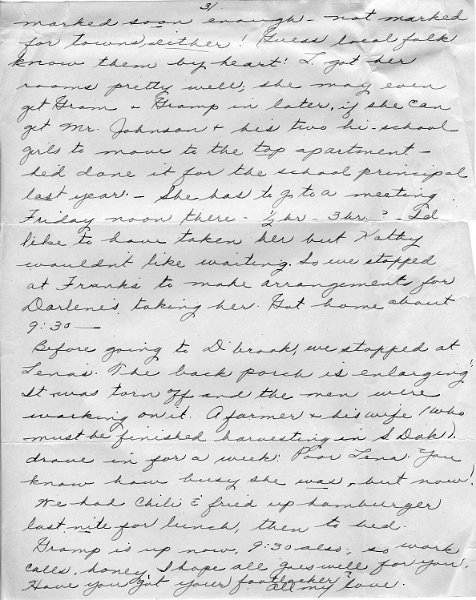 3/.
marked soon enough - not marked
for towns either! Guess local folk
know them by heart! L. got her
rooms pretty well, she may even
get Gram & Gramp in later, if she can
get Mr. Johnson & his two hi-school
girls to move to the top apartment -
he'd done it for the school principal
last year. - She has to go to a meeting
Friday noon there - ½ hr - 3 hr.? - I'd
like to have taken her but Kathy
wouldn't like waiting. So we stopped
at Franks to make arrangements for
Darlene's taking her. Got home about
9:30 -
Before going to D'brook, we stopped at
Lenas. The back porch is enlarging!
It was torn off and the men were
working on it. A farmer & his wife (who
must be finished harvesting in S Dak).
drove in for a week. Poor Lena. You
know how busy she was, but now!
We had Chili & fried up hamburger
last nite for lunch, then to bed.
Gramp is up now, 9:30 also, so work
calls, honey. I hope all goes well for you.
Have you got your footlocker? All my love.